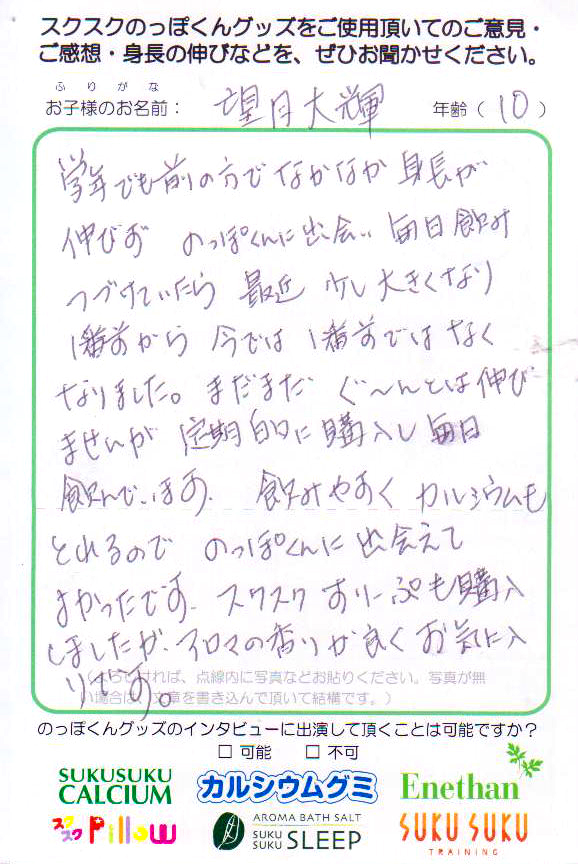 スクスクのっぽくんグッズをご使用頂いてのご意見・
ご感想・身長の伸びなどを、ぜひお聞かせください。
ふりがな
お子様のお名前： 望月大輝 年齢（ 10 ）
学年でも前の方でなかなか身長が
伸びず のっぽくんに出会い 毎日飲み
つづけていたら 最近 少し大きくなり
1番前から 今では 1番前ではなく
なりました。まだまだ ぐ〜んとは伸び
ませんが 定期的に購入し 毎日
飲んでいます。 飲みやすく カルシウムも
とれるので のっぽくんに出会えて
よかったです。スクスク すりーぷも購入
しましたが、アロマの香りが良く お気に入
りです。
ければ、点線内に写真などお貼りください。写真が無
い場合は、文章を書き込んで頂いて結構です。）
のっぽくんグッズのインタビューに出演して頂くことは可能ですか？
□ 可能 □ 不可
SUKUSUKU
CALCIUM
カルシウムグミ
Enethan
スクスク Pillow
AROMA BATH SALT
SUKU
SUKU SLEEP
SUKU SUKU
TRAINING